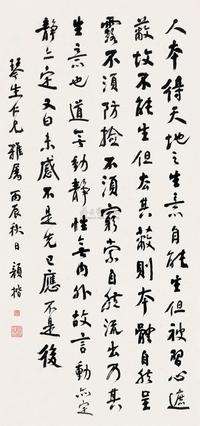 人本得天地之生意自能生但被習心遮
蔽故不能生但去其蔽則本體自然呈
露不須防檢不須窮索自然流出乃其
生意也道無動靜性無内外故言動亦定
靜亦定又曰未感不是先已應不是後
琴生仁兄雅屬 丙辰秋日 顏楷